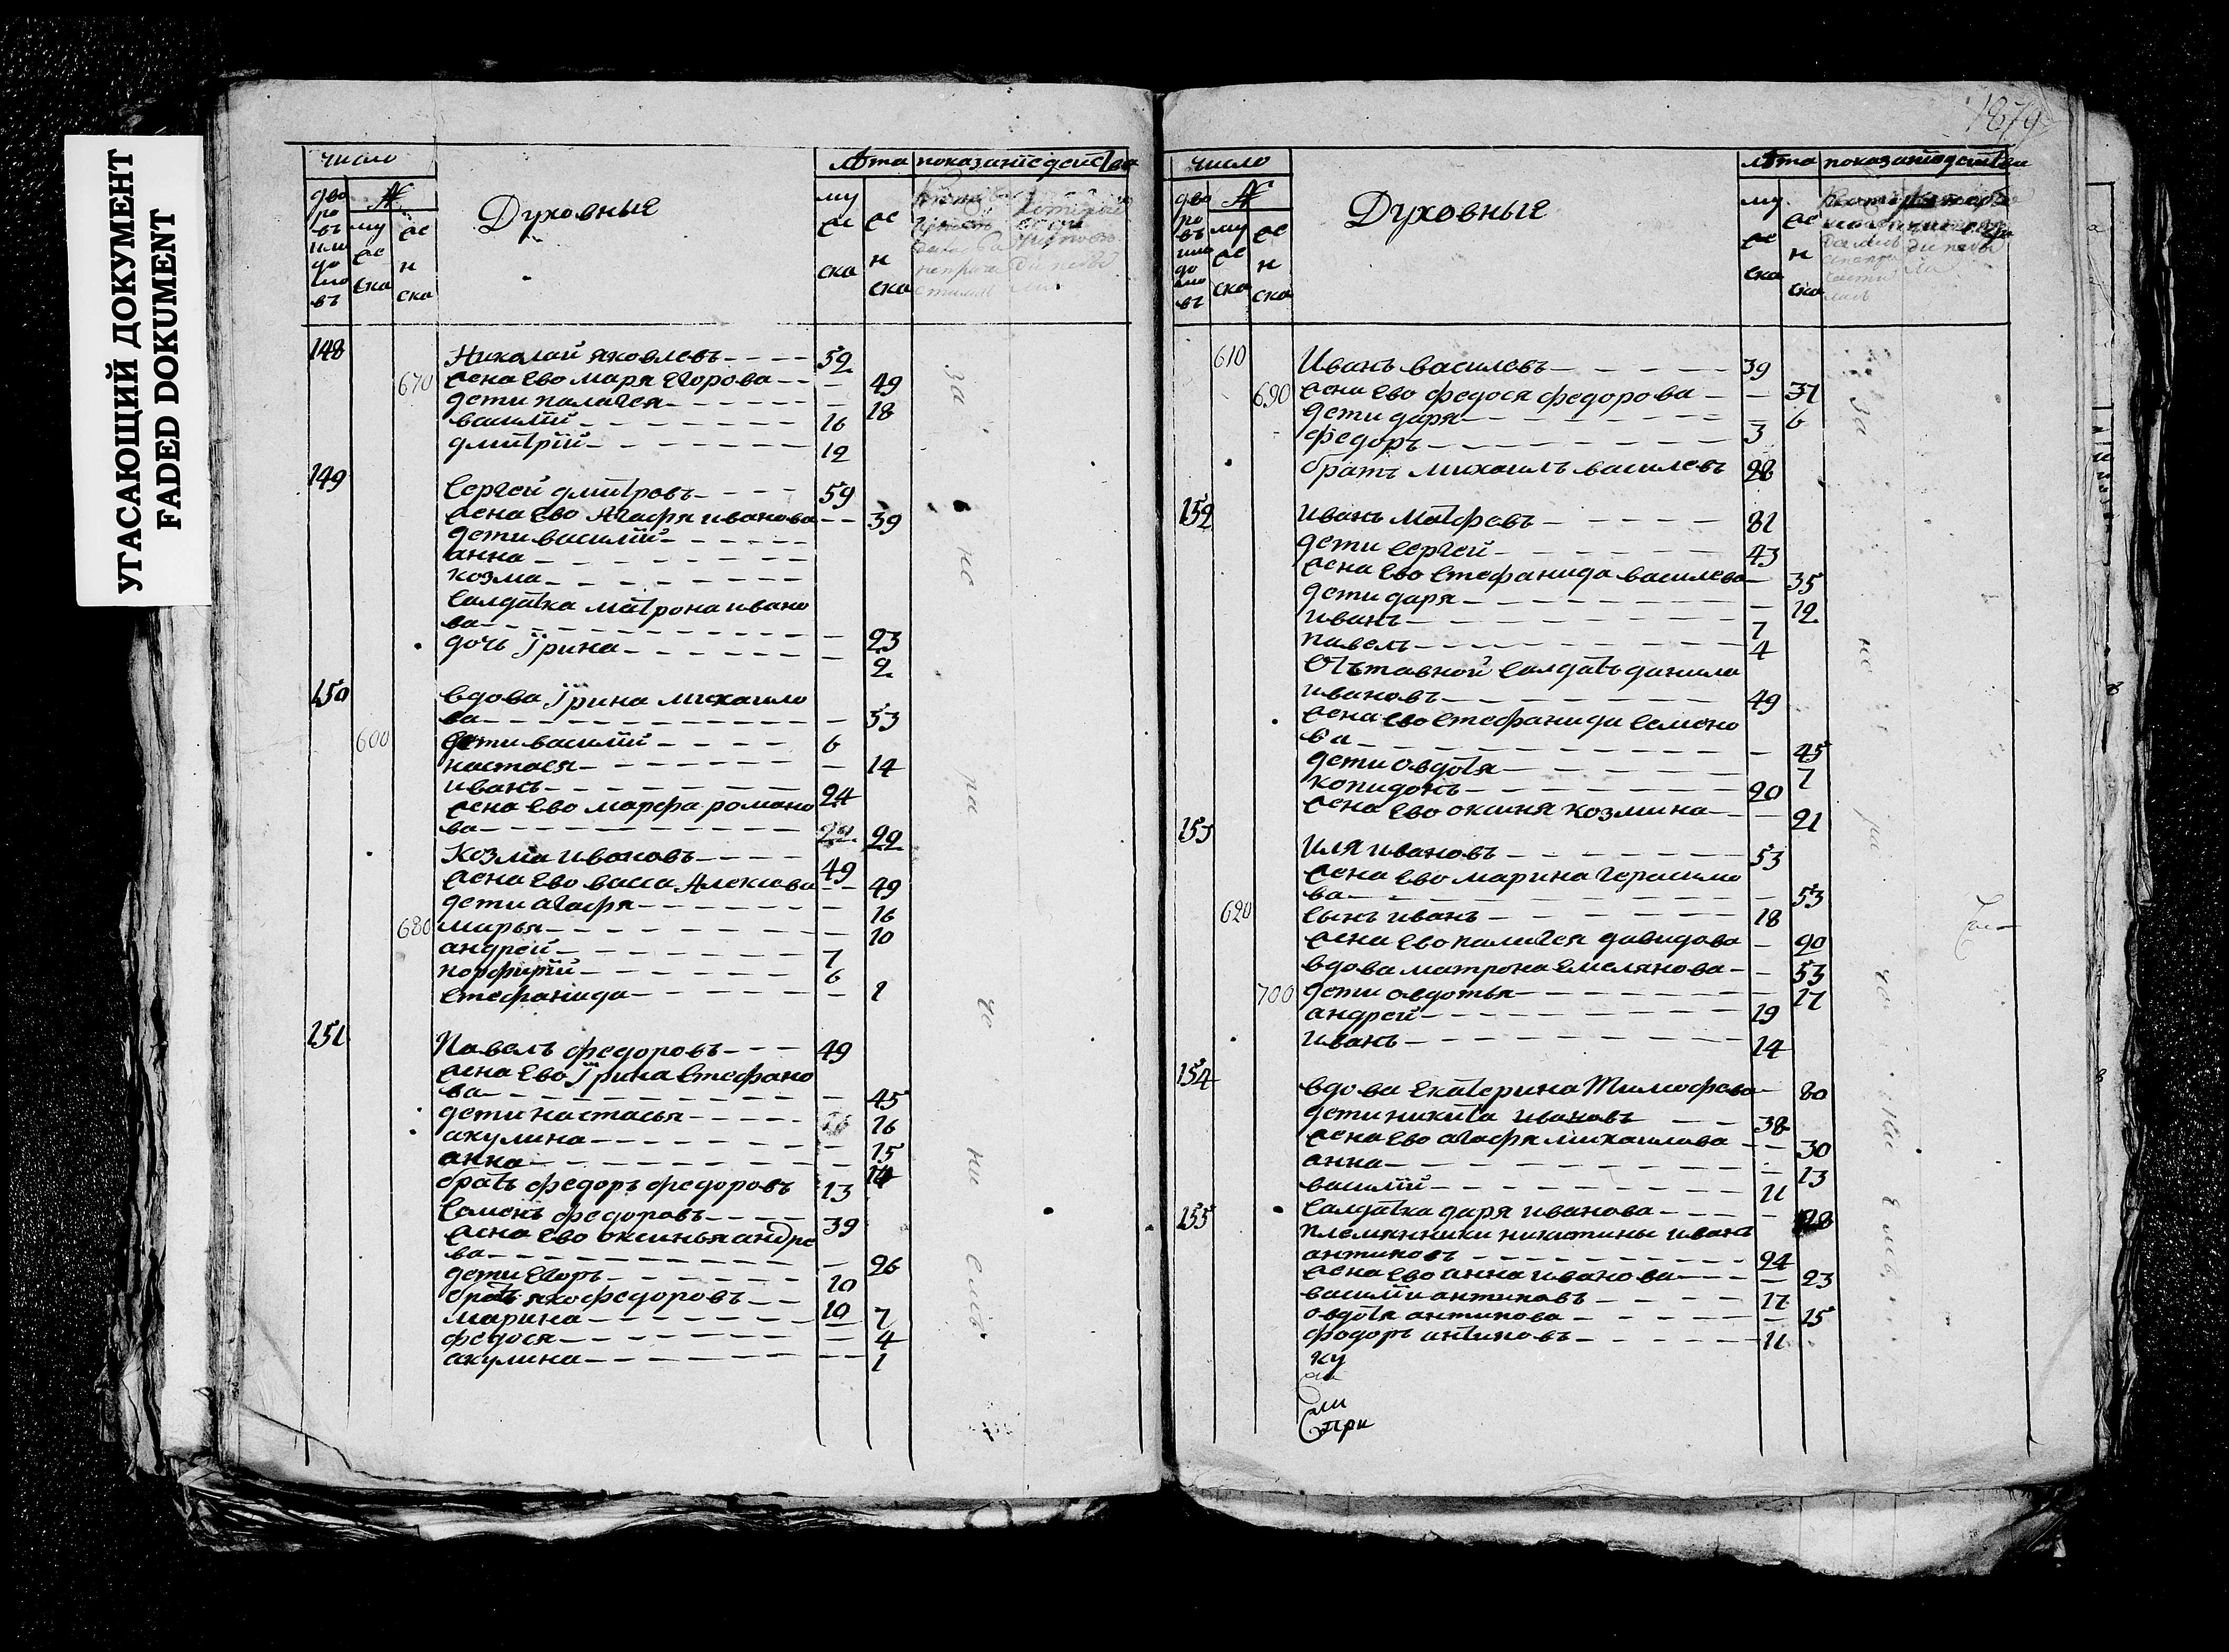 УГАСАЮЩИЙ ДОКУМЕНТ
FADED DOKUMENT
число
лѣта показанїе действа
дво
ро
въ
или
до
мо
въ
№
му
же
ска
же
н
ска
Духовныя
му
же
ска
же
н
ска
148
Николай яковлевъ 52
670 жена ево маря егорова 49
дети палагея 18
василїй 16
дмитрїй 12
149
Сергей дмитровъ 59
жена ево Агафя иванова 39
дети василїй
анна
козма
Салдатка матрона ивано
ва 23
дочь Їрина 2
150
вдова Їрина михаило
ва 53
600 дети василїй 6
настася 14
иванъ 24
жена ево марфа романо
ва 22
Козма ивановъ 49
жена ево васса Алексева 49
дети агафя 16
680 марья 10
андрей 7
порфирїй 6
стефанида 1
151
Павелъ федоровъ 49
жена ево Їрина стефано
ва 45
дети настасья 16
акулина 15
анна 14
братъ федоръ федоровъ 13
Семенъ федоровъ 39
жена ево оксинья андре
ва 26
дети егоръ 10
братъ яко федоровъ 10
марина 7
федося 4
акулина 1
за
не
ра
че
ни
емъ
1879
число
лѣта показанїе действа
дво
ро
въ
или
до
мо
въ
№
му
же
ска
же
н
ска
Духовныя
му
же
ска
же
н
ска
610 Иванъ василевъ 39
690 жена ево федося федорова 37
дети даря 6
федоръ 3
братъ михаилъ василевъ 28
152
иванъ Матфевъ 81
дети сергей 43
жена ево стефанида василева 35
дети даря 12
иванъ 7
павелъ 4
Отъставной салдатъ данила
ивановъ 49
жена ево стефанида семено
ва 45
дети овдотя 7
копидонъ 20
жена ево оксиня козмина 21
153
Иля ивановъ 53
жена ево марина герасимо
ва 53
620 сынъ иванъ 18
жена ево палагея давидова 20
вдова матрона емелянова 53
700 дети овдотья 17
андрей 19
иванъ 14
154
вдова екатерина Тимофева 80
дети никита ивановъ 38
жена ево агафя михаилова 30
анна 13
василїй 11
155 салдатка даря иванова 28
племянники никитины иванъ
антиповъ 24
жена ево анна иванова 23
василїи антиповъ 17
овдотя антипова 15
федоръ антиповъ 11
ку
при
за
не
ра
че
ни
емъ